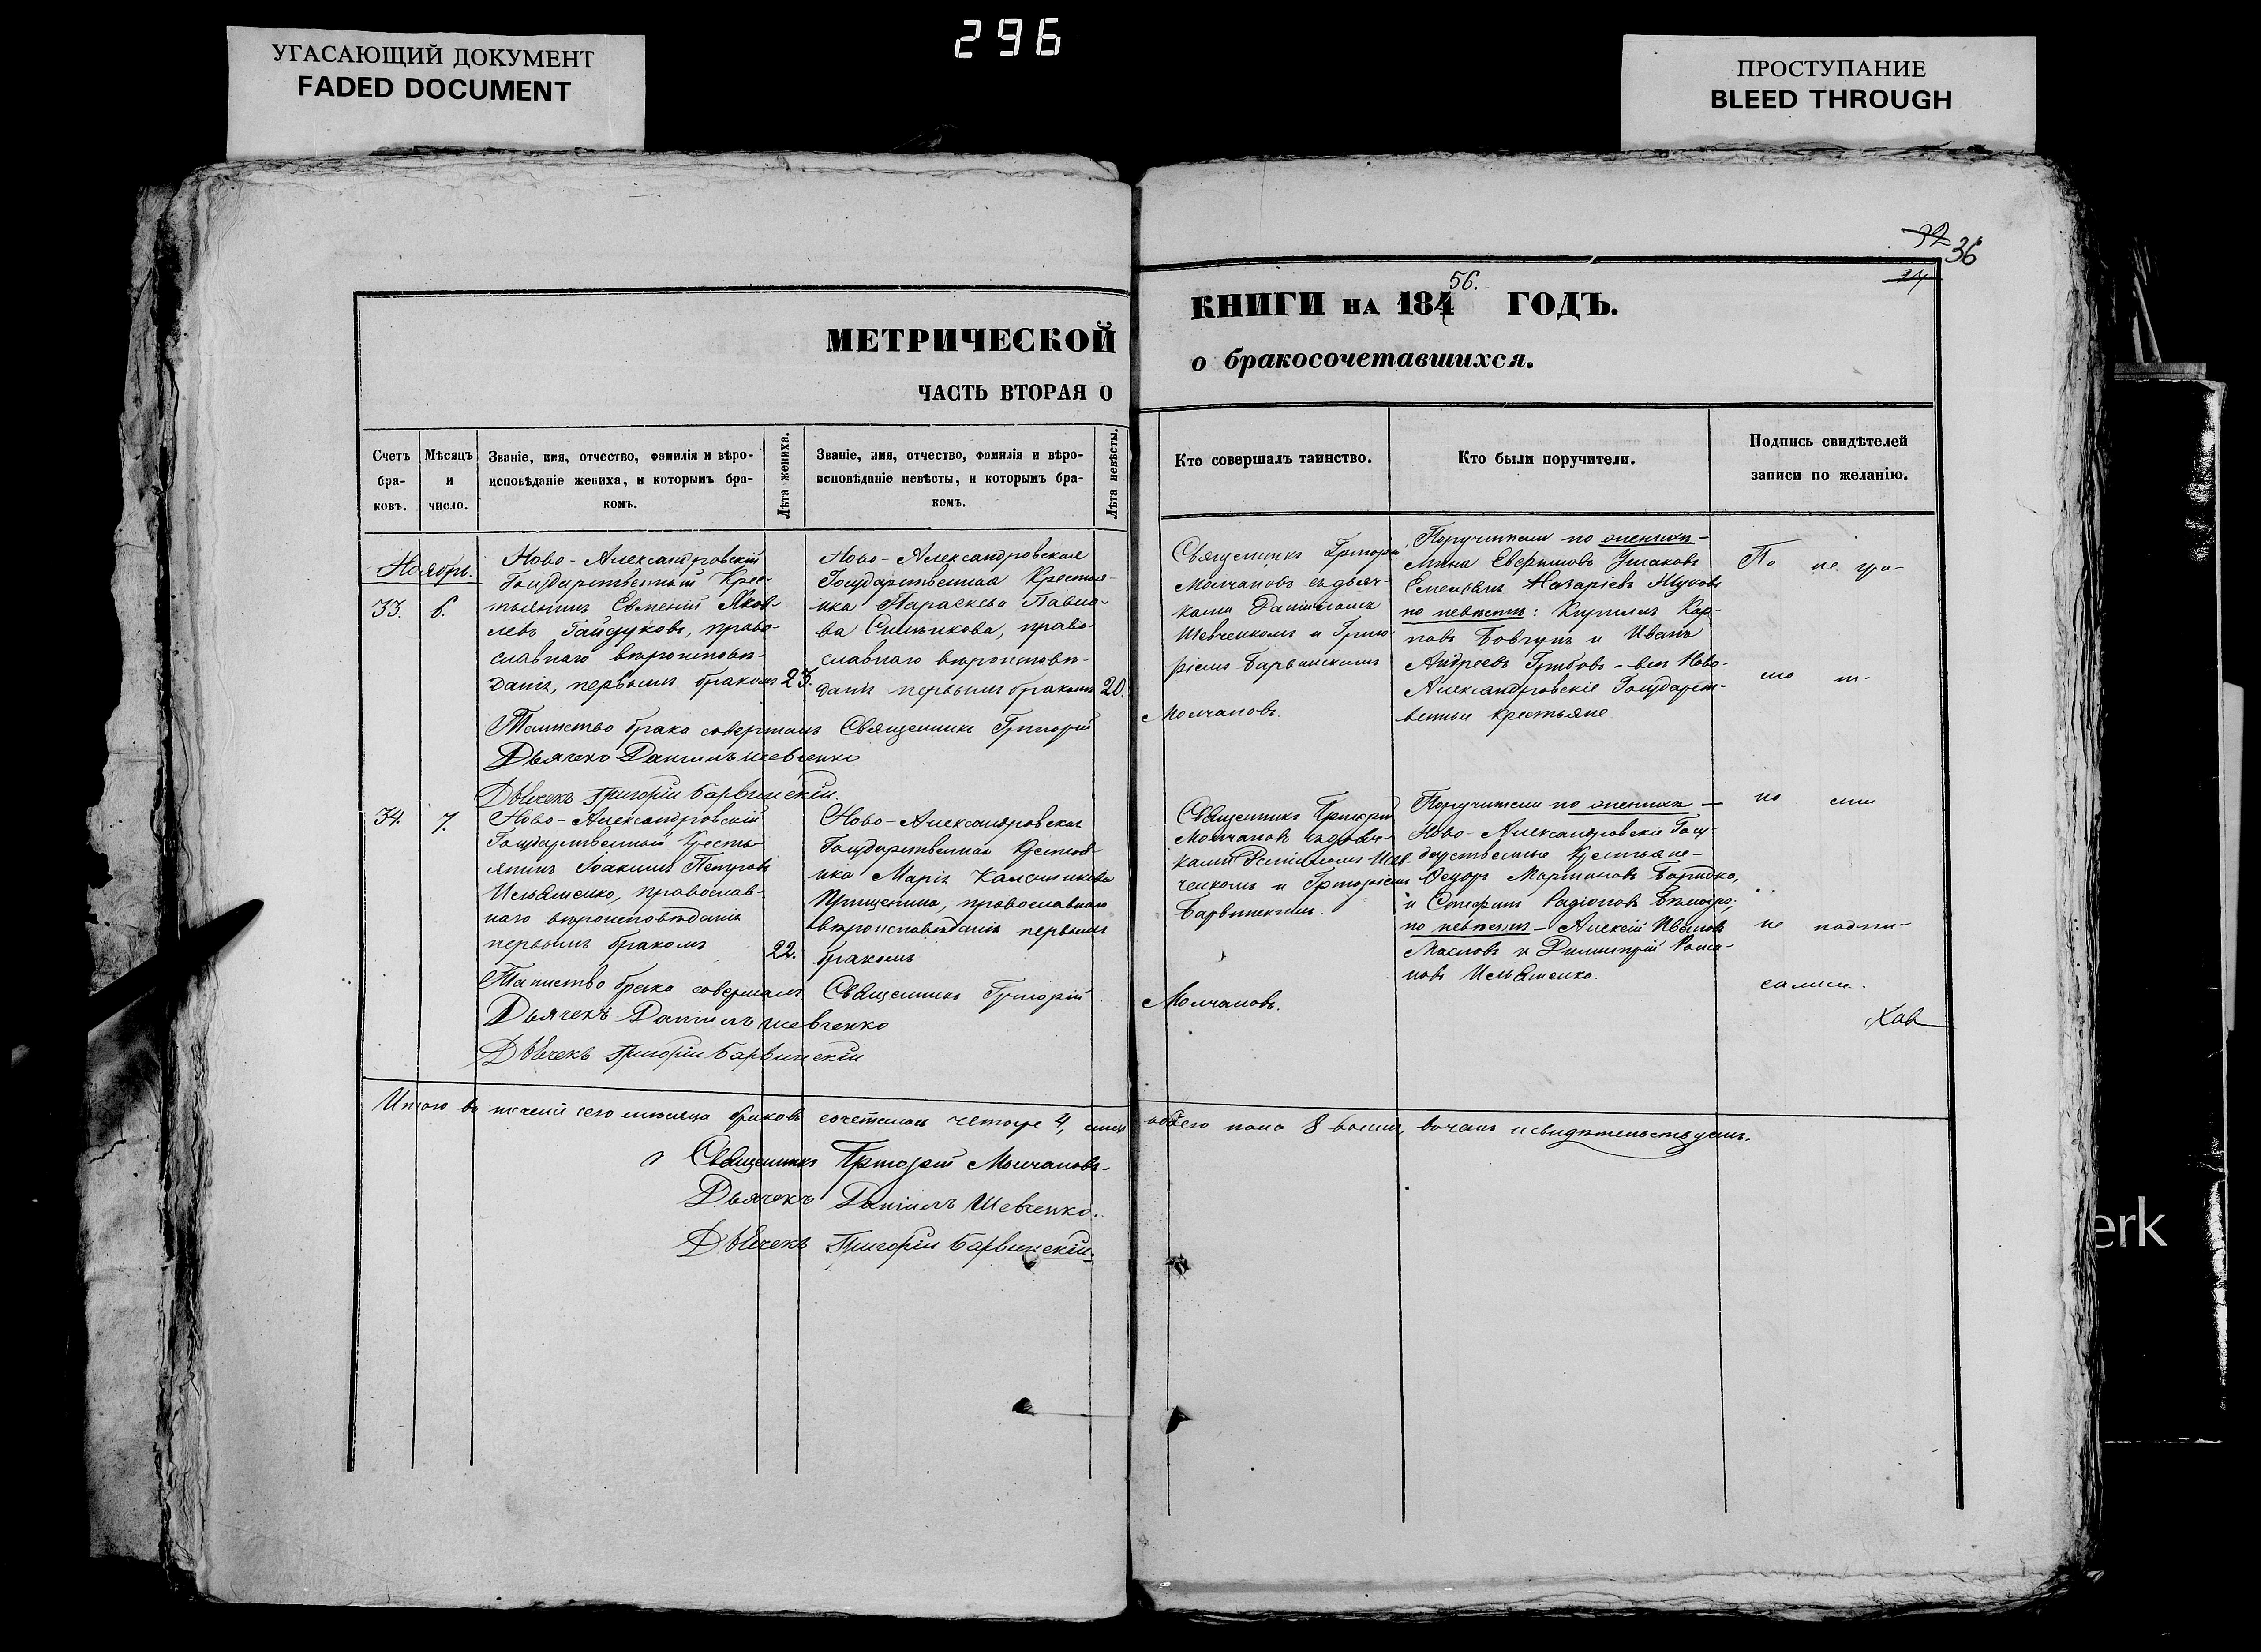 УГАСАЮЩИЙ ДОКУМЕНТ
FADED DOCUMENT
296
ПРОСТУПАНИЕ
BLEED THROUGH
32
36
МЕТРИЧЕСКОЙ
ЧАСТЬ ВТОРАЯ О
56.
КНИГИ НА 184 ГОДЪ.
о бракосочетавшихся.
Счетъ бра-ковъ.
Мѣсяцъ и число.
Званіе, имя, отчество, фамилія и вѣро-
исповѣданіе жениха, и которымъ бра-
комъ.
Лѣта жениха.
Званіе, имя, отчество, фамилія и вѣро-
исповѣданіе невѣсты, и которымъ бра-
комъ.
Лѣта невѣсты.
Кто совершалъ таинство.
Кто были поручители.
Подпись свидѣтелей
записи по желанію.
Ноябрь.
33.
6.
Ново-Александровскій
Государственный Крес-
тьянинъ Евменій Яков-
левъ Гайдуковъ, право-
славнаго вѣроисповѣ-
данія, первымъ бракомъ
23.
Ново-Александровская
Государственная Крестья-
нка Параскева Павло-
ва Ситникова, право-
славнаго вѣроисповѣ-
данія первымъ бракомъ
20.
Священникъ Григорій
Молчановъ съ дьяч-
ками Даніиломъ
Шевченкомъ и Григо-
ріемъ Барвинскимъ
Поручители по женихѣ-
Мина Ушаковъ
Емельянъ Назаріевъ Жуковъ
по невѣстѣ: Кириллъ Кар-
повъ Бовгунъ и Иванъ
Андреевъ Грибовъ - всѣ Ново-
Александровскіе Государст-
венные крестьяне
По не гра-
мо т-
Таинство брака совершалъ Священникъ Григорій Молчановъ.
Дьячекъ Даніилъ Шевченко
Дьячекъ Григорій Барвинскій.
34.
7.
Ново-Александровскій
Государственный Кресть-
янинъ Іоакимъ Петровъ
Ильяшенко, православ-
наго вѣроисповѣданія
первымъ бракомъ
22.
Ново-Александровская
Государственная Крестья-
нка Марія
православнаго
вѣроисповѣданія первымъ
бракомъ
Священникъ Григорій
Молчановъ съ дьяч-
ками Даніиломъ Шев-
ченкомъ и Григоріемъ
Барвинскимъ.
Поручители по женихѣ -
Ново-Александровскіе Госу-
дарственные Крестьяне -
Ѳедоръ Мартиновъ
и Стефанъ Радіоновъ
по невѣстѣ - Алексій Ивановъ
Масловъ и Димитрій Рома-
новъ Ильяшенко.
но сти
не подпи-
сались.
Таинство брака совершалъ Священникъ Григорій Молчановъ.
Дьячекъ Даніилъ Шевченко
Дьячекъ Григорій Барвинскій
Итого въ теченіи сего мѣсяца браковъ сочеталось четыре 4, лицъ обоего пола 8 свидѣтельствуемъ.
Священникъ Григорій Молчановъ.
Дьячекъ Даніилъ Шевченко.
Дьячекъ Григорій Барвинскій.
erk